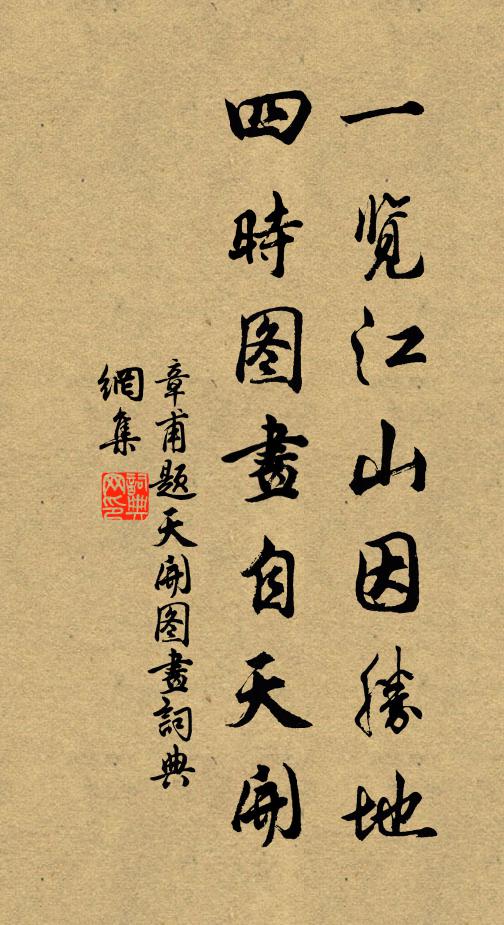 一览江山因勝地
四時图畫自天開
章甫题天開图畫詞典
網集
詞典网印